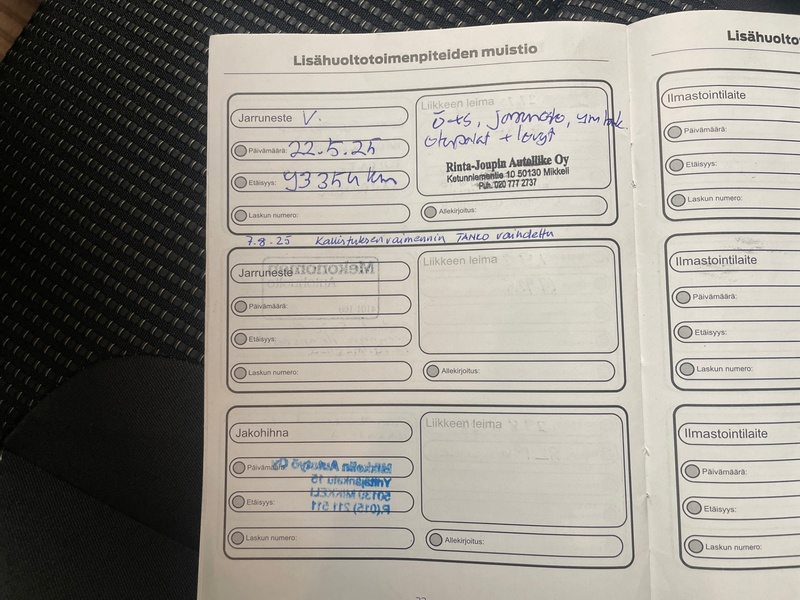 Lisähuoltotoimenpiteiden muistio
Jarruneste V.
Päivämäärä: 22.5.25
Etäisyys: 93354 km
Laskun numero:
Liikkeen leima
ö+s, jarruneste,
etupalat + levyt
Rinta-Joupin Autoliike Oy
Ketunniementie 10 50130 Mikkeli
Puh. 020 777 2737
Allekirjoitus:
7.8.25 Kallistuksenvaimennin TANKO vaihdettu
Jarruneste
Päivämäärä:
Etäisyys:
Laskun numero:
Liikkeen leima
Allekirjoitus:
Jakohihna
Päivämäärä:
Etäisyys:
Laskun numero:
Liikkeen leima
Allekirjoitus:
Lisähuolto
Ilmastointilaite
Päivämäärä:
Etäisyys:
Laskun numero:
Ilmastointilaite
Päivämäärä:
Etäisyys:
Laskun numero:
Ilmastointilaite
Päivämäärä:
Etäisyys:
Laskun numero: